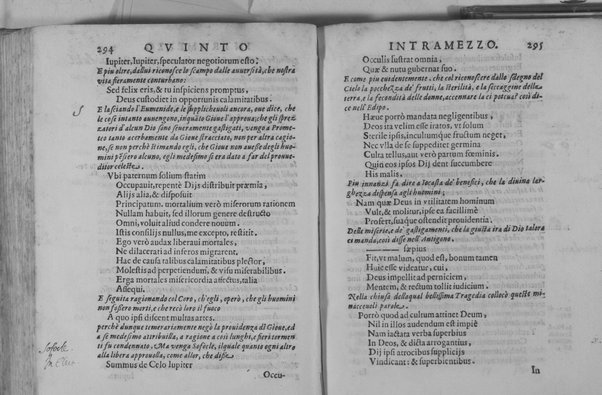 294 QVINTO
Iupiter, Iupiter, speculator negotiorum esto:
E piu oltre, dallui riconosce lo scampo dalle auuersità, che nostra
vita fieramente conturbano:
Sed felix eris, & tu inspiciens promptus,
Deus custodiet in opportunis calamitatibus.
E lasciando l'Eumenide, e le supplicheuoli ancora, oue dice, che
le cose intanto auuengono, inquãto Gioue l'approua; che gli sprez
zatori d'alcun Dio sono seueramente gastigati, vengo a Prome-
teo tanto acerbamente da Gioue stracciato, non per altra cagio-
ne, se non perchè stimando egli, che Gioue non auesse degli huo-
mini pẽsiero alcuno, egli medesimo si era dato a far del proueue-
ditor celeste.
Vbi paternum solium statim
Occupauit, repentè Dijs distribuit præmia,
Alijs alia, & disposuit
Principatum. mortalium verò miserorum rationem
Nullam habuit, sed illorum genere destructo
Omni, voluit aliud condere nouum.
Istis consilijs nullus, me excepto, restitit.
Ego verò audax liberaui mortales,
Ne dilacerati ad inferos migrarent,
Hac de causa talibus calamitatibus plector,
Molestis ad perpetiendum, & visu miserabilibus.
Erga mortales misericordia affectus, talia
Assequi.
E seguita ragionando col Coro, ch'egli, operò, che gli huomini
non fossero morti, e che recò loro il fuoco
A quo ipsi discent multas artes.
perchè dunque temerariamente negò la prouidenza di Gioue, ed
a se medesimo attribuilla, a ragione a così lunghi, e fieri tormen
ti fu condennato. Ma venga Sofocle, il quale quanto ogni altro
alla libera approuolla, come aller, che disse.
Summus de Celo Iupiter
Occu-
Sofocle
INTRAMEZZO. 295
Occulis lustrat omnia,
Quæ & nutu gubernat suo.
E come piu euidentemente. che col riconoscere dallo sdegno del
Cielo la pochezza de' frutti, la sterilità, e la seccagine della
terra, e la fecondità delle donne, accennare la ci poteua? così di-
ce nell'Edipo.
Hæc porrò mandata negligentibus,
Deos ita velim esse iratos, vt solum
Sterile ipsos, incultumque frustetur neget,
Nec vlla de se suppeditet germina
Culta tellus, aut verò partum fœminis.
Quin eos ipsos Dij dent succumbere
His malis.
Piu innanzi fa dire a Iocasta de' benefici, che la diuina lar-
ghezza dispensa agli huomini;
Nam quæ Deus in vtilitatem hominum
Vult, & molitur, ipse ea facillimè
Profert, suaque ostendit prouidentia.
Delle miserie, e de' gastigamenti, che la giusta ira di Dio talora
ci manda, così disse nell'Antigone.
sæpius
Fit, vt malum, quod est, bonum tamen
Huic esse videatur, cui,
Deus impellit ad perniciem,
Mentem, & rectum tollit iudicium.
Nella chiusa dellaqual bellissima Tragedia collocò queste mi-
nacceuoli parole.
Porrò quod ad cultum attinet Deum,
Nil in illos audendum est impiè
Nam iactata verba superbius
In Deos, & dicta arrogantius,
Dij ipsi atrocibus supplicijs
Vindicant: & superbientibus.
In